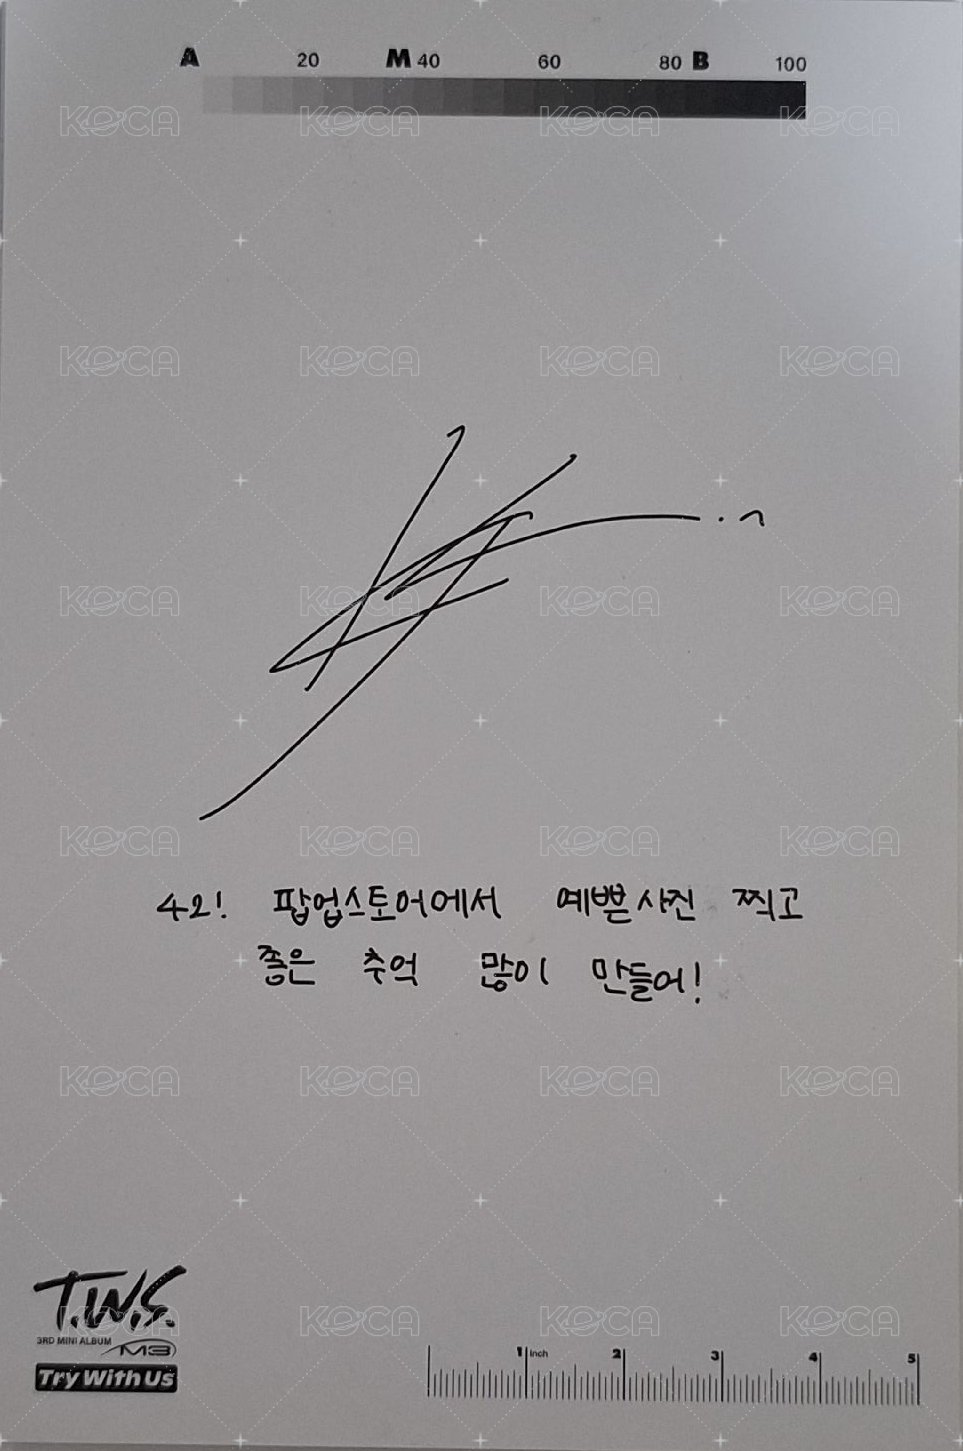 A 20 M 40 60 80 B 100
KOCA KOCA KOCA KOCA
KOCA KOCA KOCA KOCA
KOCA KOCA KOCA KOCA
KOCA KOCA KOCA KOCA
42! 팝업스토어에서 예쁜 사진 찍고
좋은 추억 많이 만들어!
KOCA KOCA KOCA KOCA
T.W.S.
KOCA KOCA KOCA KOCA
3RD MINI ALBUM
Try With Us
1 inch 2 3 4 5